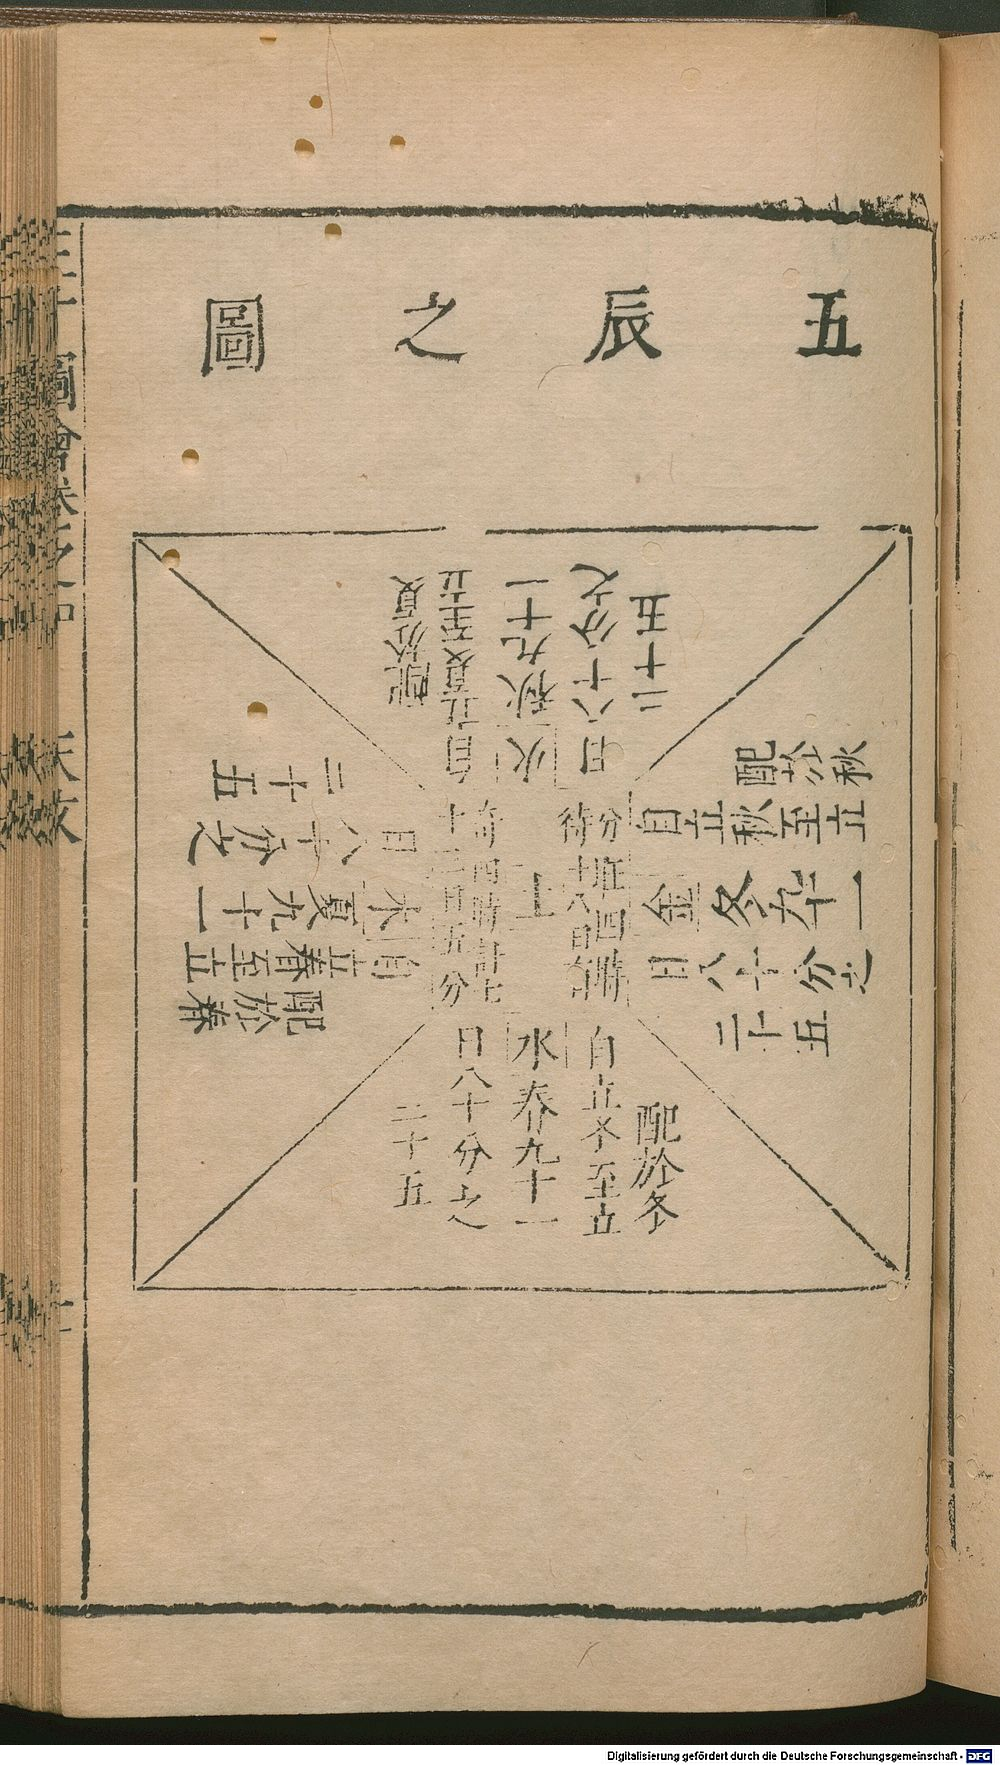 五辰之圖
配於夏
自立夏至立
火秋九十一
日八十分之
二十五
配於秋
自立秋至立
金冬九十一
日八十分之
二十五
配於冬
自立冬至立
水春九十一
日八十分之
二十五
配於春
自立春至立
木夏九十一
日八十分之
二十五
土
分旺四時
各十八日
圖會
天文
Digitalisierung gefördert durch die Deutsche Forschungsgemeinschaft - DFG